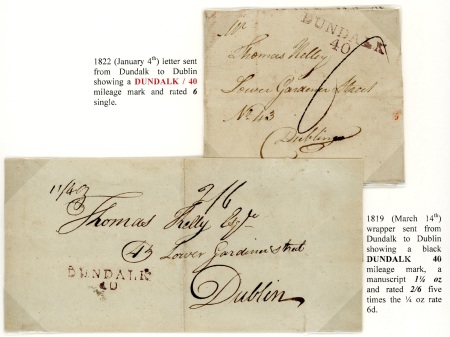 1822 (January 4th) letter sent
from Dundalk to Dublin
showing a DUNDALK / 40
mileage mark and rated 6
single.
DUNDALK
40
Thomas Kelly
Lower Gardener Street
No 43
Dublin
6
2/6
Thomas Kelly Esqre
43 Lower Gardiner Street
Dublin
DUNDALK
40
1819 (March 14th)
wrapper sent from
Dundalk to Dublin
showing a black
DUNDALK 40
mileage mark, a
manuscript 1¼ oz
and rated 2/6 five
times the ¼ oz rate
6d.